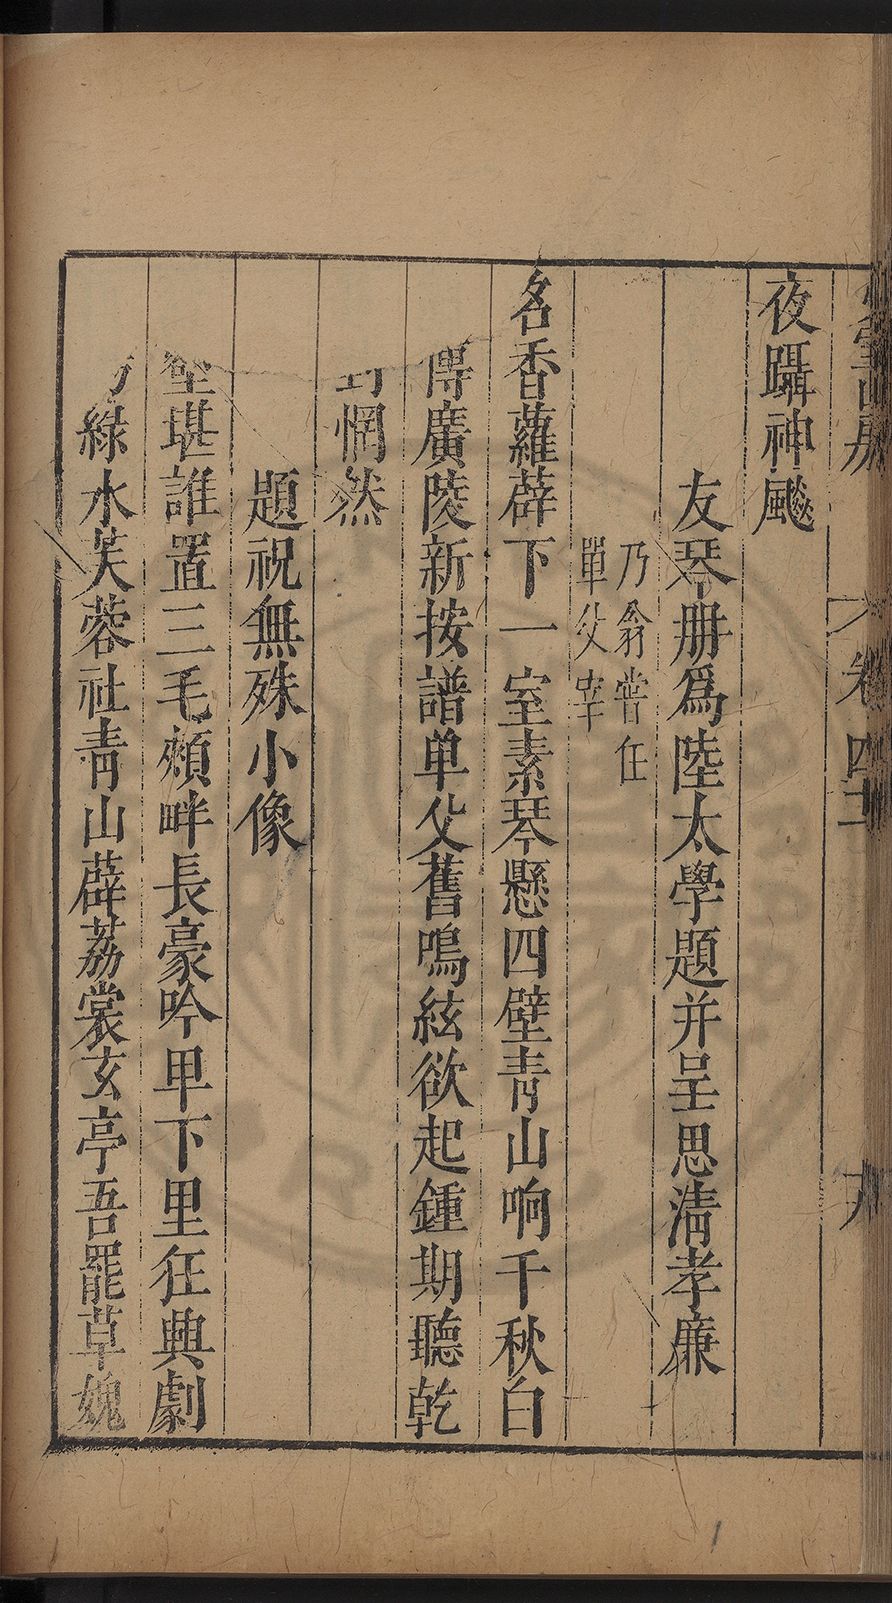 夜躡神飈
友琴册爲陸太學題并呈思淸孝廉
乃翁嘗任
單父宰
名香蘿薜下一室素琴懸四壁靑山响千秋白
傳廣陵新按譜单父舊鳴絃欲起鍾期聽乾
惘然
題祝無殊小像
堪誰置三毛頰畔長豪吟甲下里狂典劇
綠水芙蓉社靑山薜荔裳玄亭吾罷草媿
卷四十五